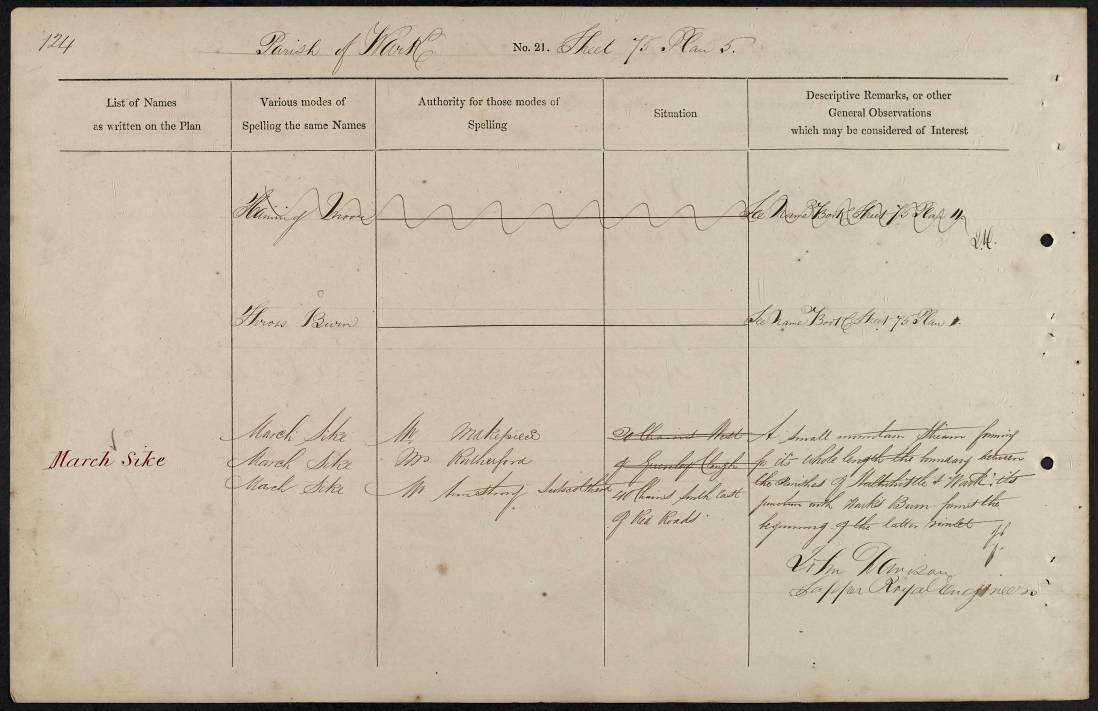 124
Parish of Wark
No. 21. Sheet 75 Plan 5.
List of Names
as written on the Plan
Various modes of
Spelling the same Names
Authority for those modes of
Spelling
Situation
Descriptive Remarks, or other
General Observations
which may be considered of Interest
Haining Moor
See Name Book Sheet 75 Plan 4
Burn
See Name Book Sheet 75 Plan 1.
March Sike
March Sike
March Sike
March Sike
Mr Makepiece
Mr. Rutherford
Mr Armstrong
20 Chains West
of Greenlay Cleugh
40 Chains South East
of Red Roads
A small mountain Stream forming
for its whole length the boundary between
the Parishes of Haltwhistle & Wark: its
junction with Wark's Burn forms the
beginning of the latter rivulet
John Davison
Sapper Royal Engineers